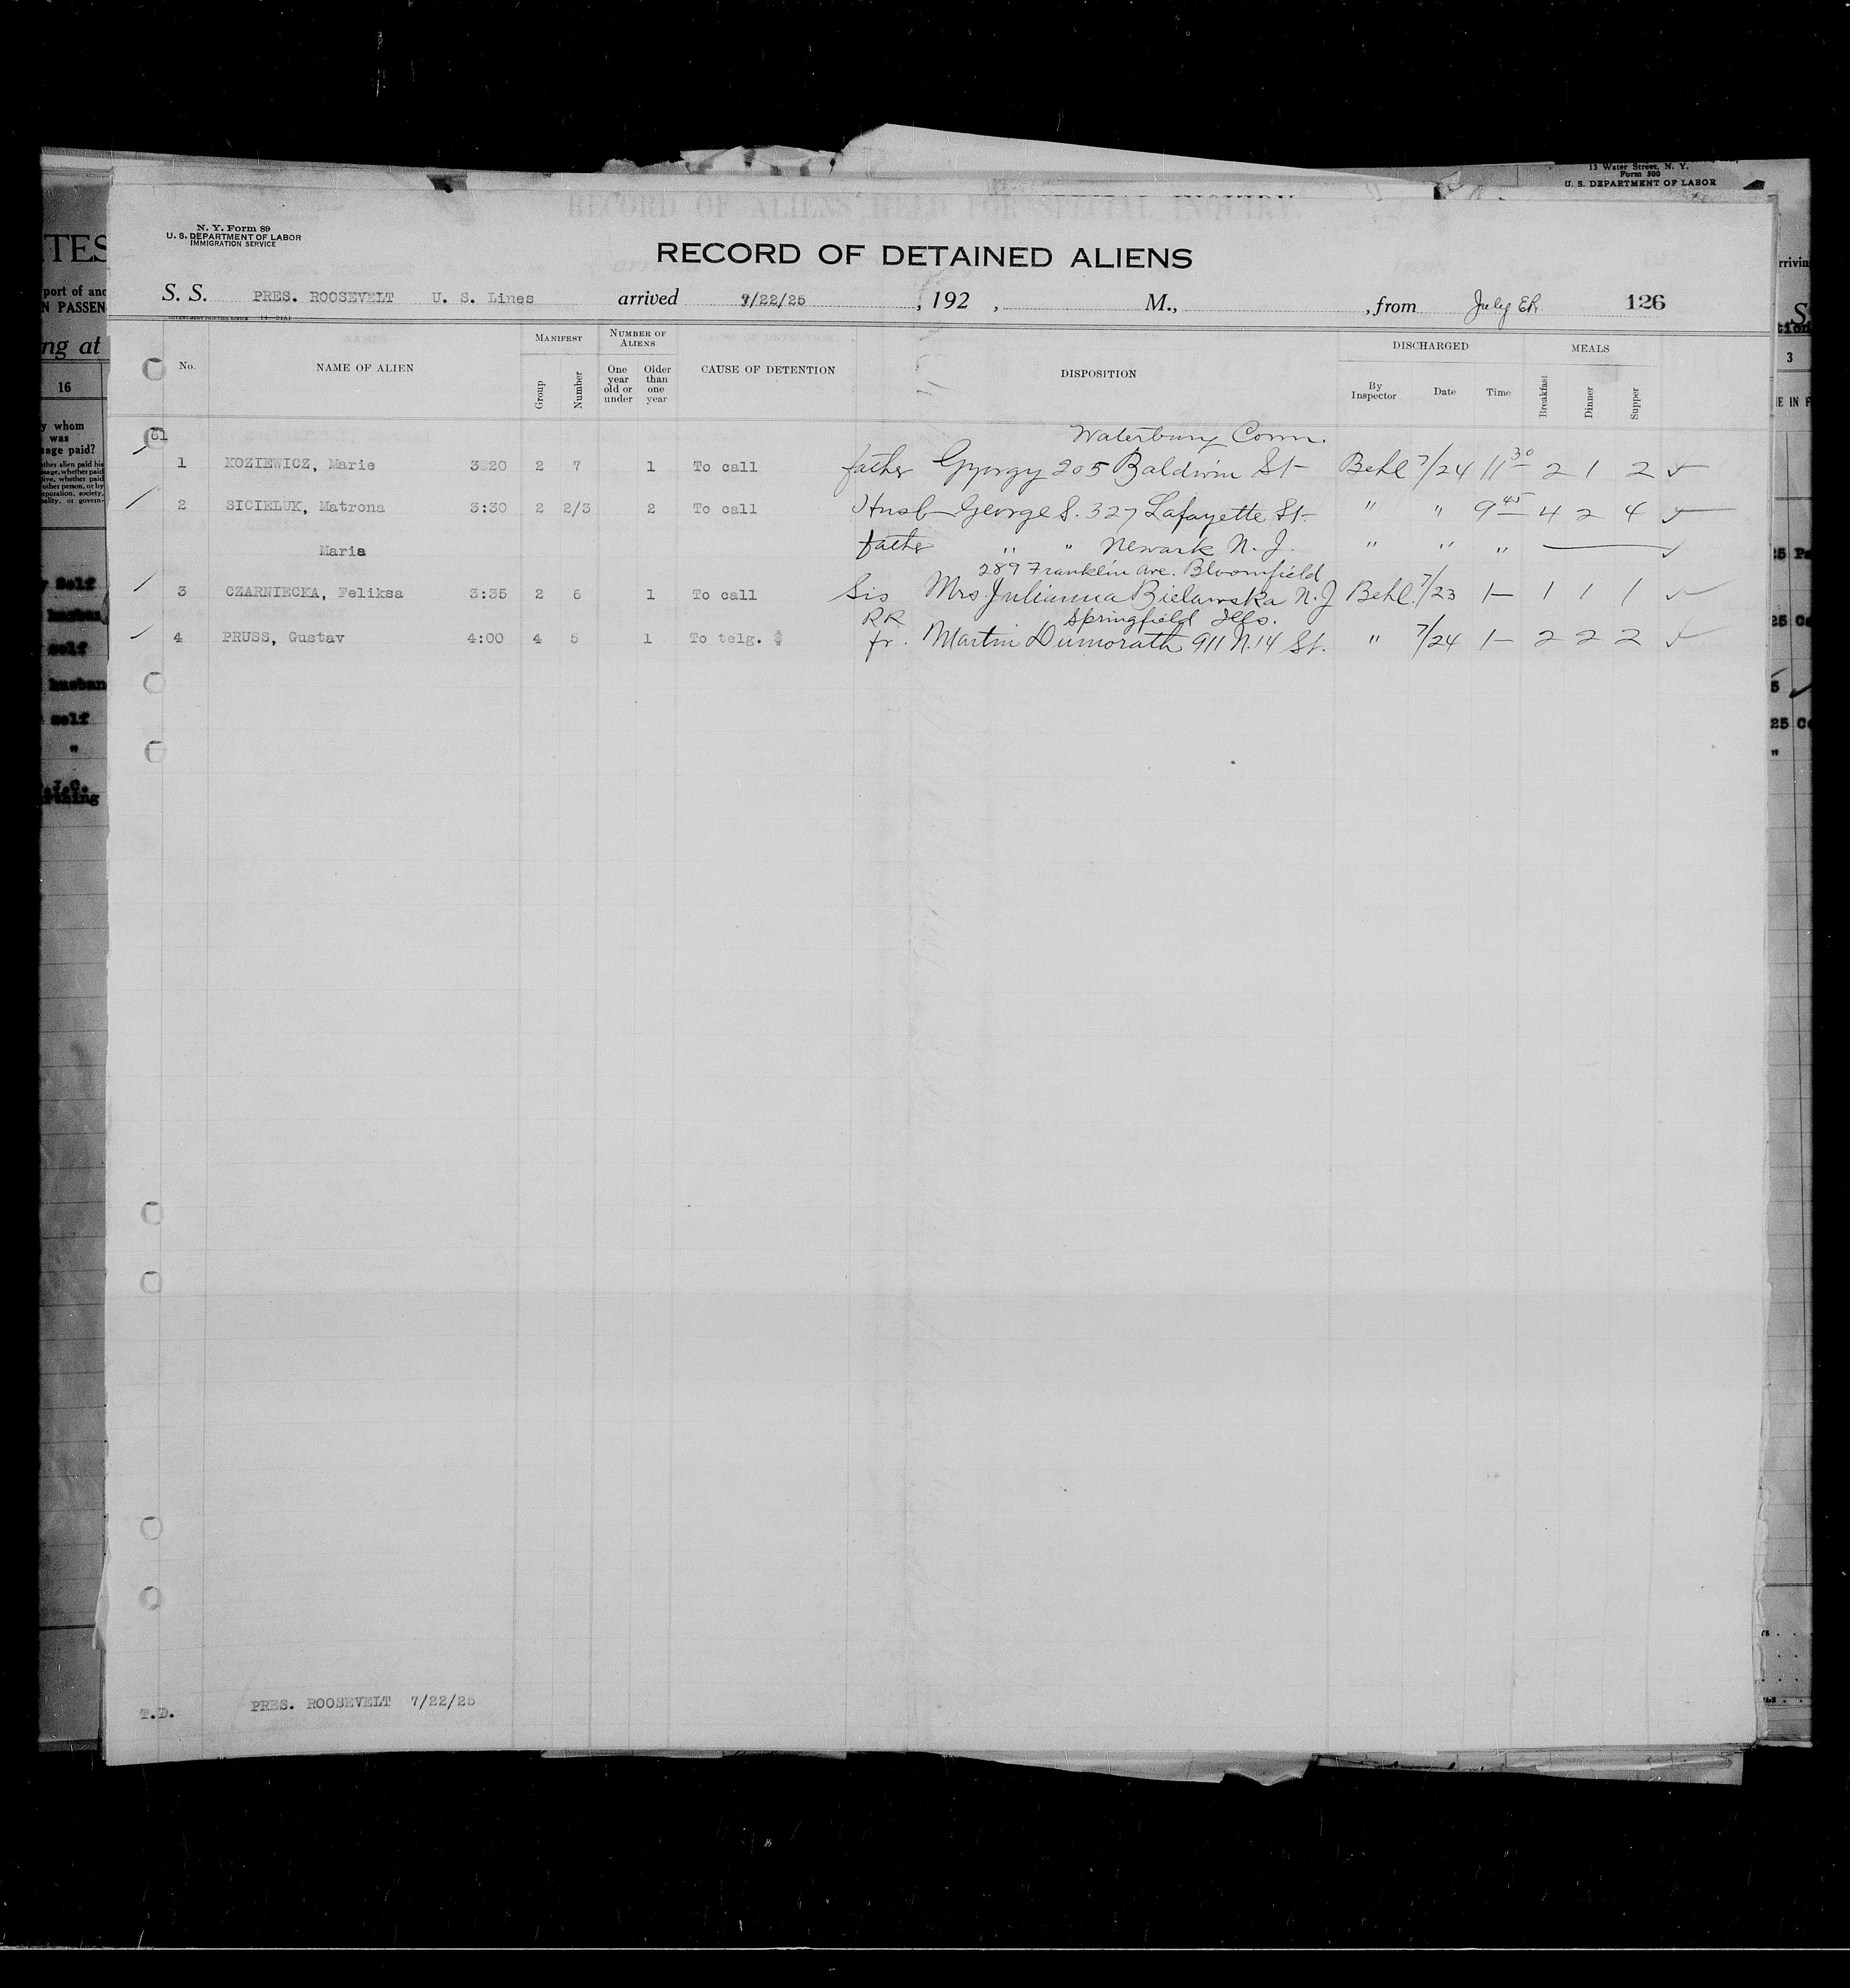 13 Water Street, N. Y.
Form 500
U. S. DEPARTMENT OF LABOR
RECORD OF ALIENS HELD FOR SPECIAL INQUIRY
N. Y. Form 89
U. S. DEPARTMENT OF LABOR
IMMIGRATION SERVICE
RECORD OF DETAINED ALIENS
S. S. PRES. ROOSEVELT U. S. Lines arrived 7/22/25 , 192 , M., , from July 126
No. NAME OF ALIEN MANIFEST Group Number NUMBER OF ALIENS One year old or under Older than one year CAUSE OF DETENTION DISPOSITION DISCHARGED By Inspector Date Time MEALS Breakfast Dinner Supper
61
Waterbury Conn.
1 KOZIEWICZ, Marie 3 20 2 7 1 To call father Gyorgy 205 Baldwin St Behl 7/24 11 30 2 1 2 ✓
2 SICIELUK, Matrona 3:30 2 2/3 2 To call Husb George S. 327 Lafayette St. " " 9 45 4 2 4 ✓
Maria father " " Newark N. J. " " " ✓
289 Franklin Ave. Bloomfield
3 CZARNIECKA, Feliksa 3:35 2 6 1 To call Sis Mrs. Julianna Bielawska N. J Behl. 7/23 1— 1 1 1 ✓
RR Springfield Ills.
4 PRUSS, Gustav 4:00 4 5 1 To telg. fr. Martin Dumorath 911 N. 14 St. " 7/24 1— 2 2 2 ✓
T.D. PRES. ROOSEVELT 7/22/25
TES
port of
N PASSEN
ng at
16
y whom
was
sage paid?
Self
self
husban
self
"
3